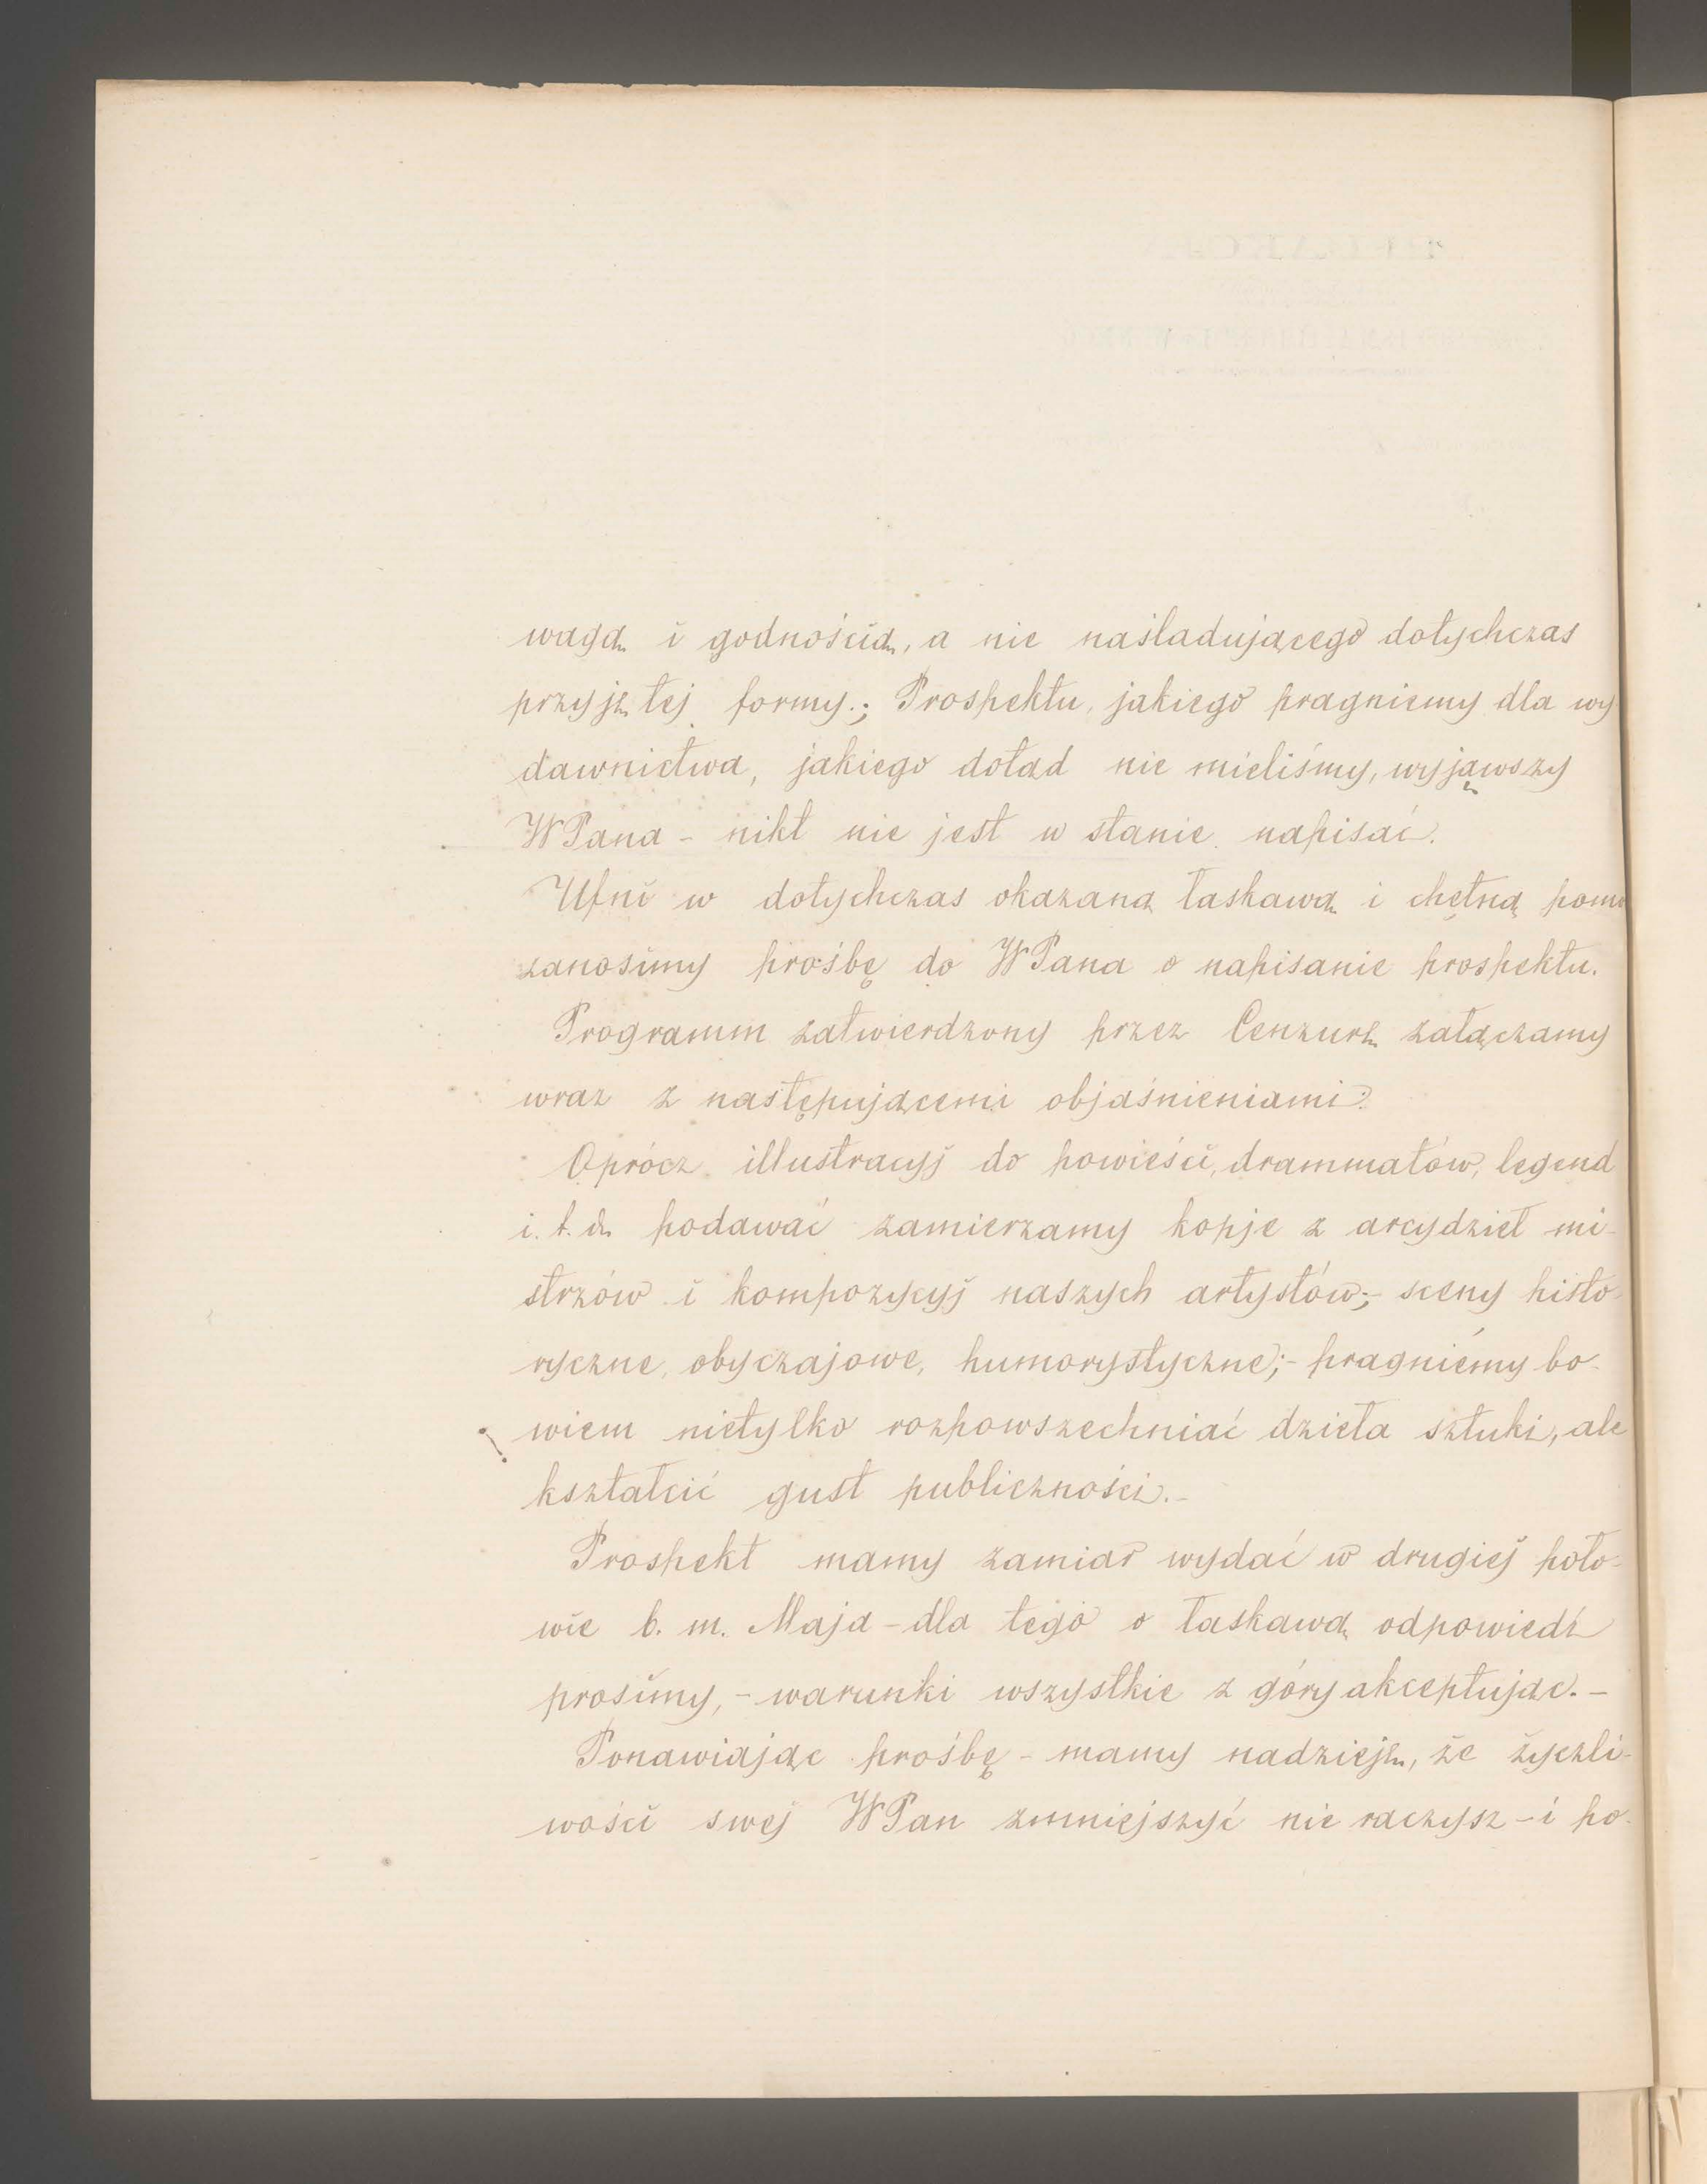 wagą i godnością, a nie naśladującego dotychczas
przyjętej formy.; Prospektu, jakiego pragniemy dla wy
dawnictwa, jakiego dotąd nie mieliśmy, wyjąwszy
WPana - nikt nie jest w stanie napisać.
Ufni w dotychczas okazaną łaskawą i chętną pomo
zanosimy prośbę do WPana o napisanie prospektu.
Programm zatwierdzony przez Cenzurę załączamy
wraz z następującemi objaśnieniami:
Oprócz illustracyj do powieści, drammatów, legend
i. t. d. podawać zamierzamy kopje z arcydzieł mi-
strzów i kompozycyj naszych artystów;- sceny histo-
ryczne, obyczajowe, humorystyczne;- pragniemy bo-
wiem nietylko rozpowszechniać dzieła sztuki, ale
kształcić gust publiczności.-
Prospekt mamy zamiar wydać w drugiej poło-
wie b. m. Maja - dla tego o łaskawą odpowiedź
prosimy, - warunki wszystkie z góry akceptując.-
Ponawiając prośbę - mamy nadzieję, że życzli-
wości swej WPan zmniejszyć nie raczysz - i po-